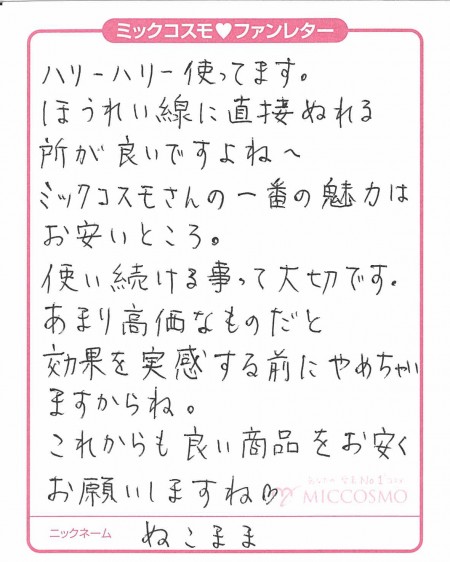 ミックコスモ♥ファンレター
ハリーハリー使ってます。
ほうれい線に直接ぬれる
所が良いですよね～
ミックコスモさんの一番の魅力は
お安いところ。
使い続ける事って大切です。
あまり高価なものだと
効果を実感する前にやめちゃい
ますからね。
これからも良い商品をお安く
お願いしますね♡
MICCOSMO
ニックネーム ぬこまま